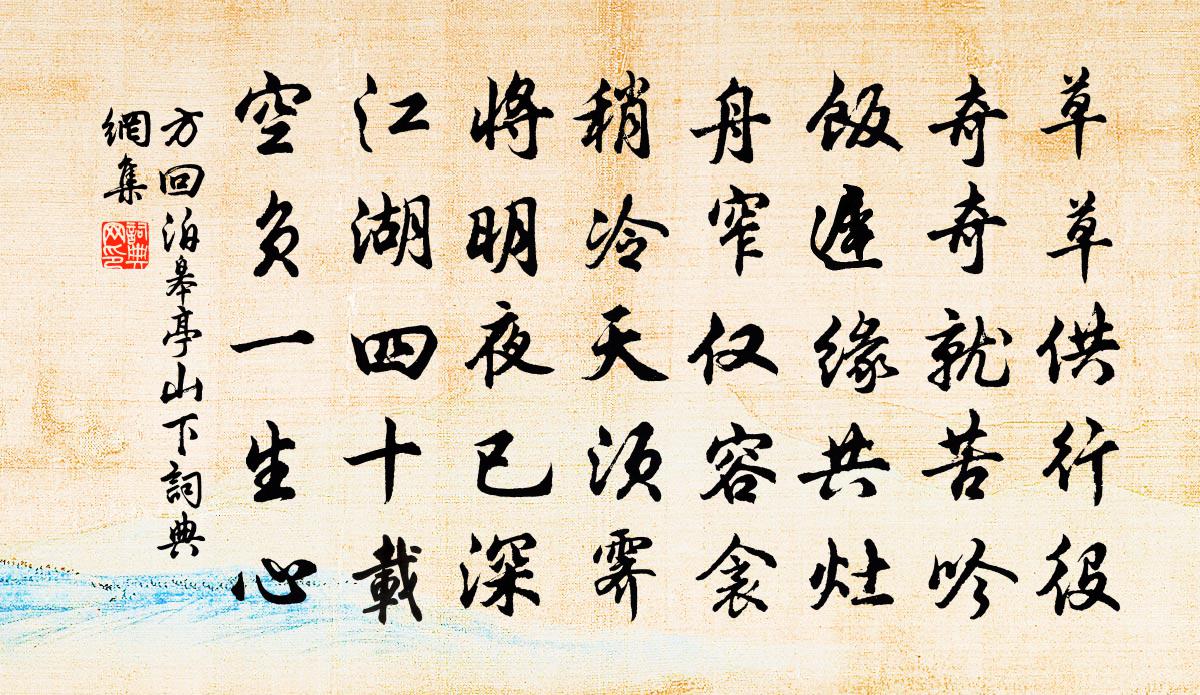 草草供行役
奇奇就苦吟
飯遲緣共灶
舟窄仅容衾
稍冷天須霽
將明夜已深
江湖四十載
空負一生心
方回泊皋亭山下詞典
網集
詞典
网印